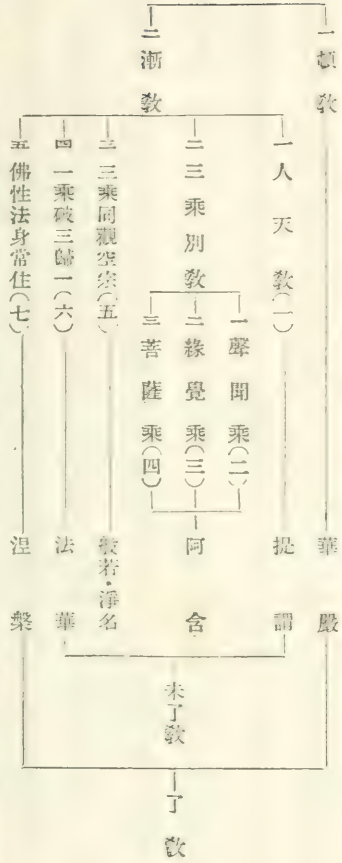 一頓教
華嚴
二漸教
一人天教(一)
提謂
二三乘別教
一聲聞乘(二)
二緣覺乘(三)
三菩薩乘(四)
阿含
三三乘同觀空宗(五)
般若·淨名
四一乘破三歸一(六)
法華
五佛性法身常住(七)
涅槃
未了教
了教